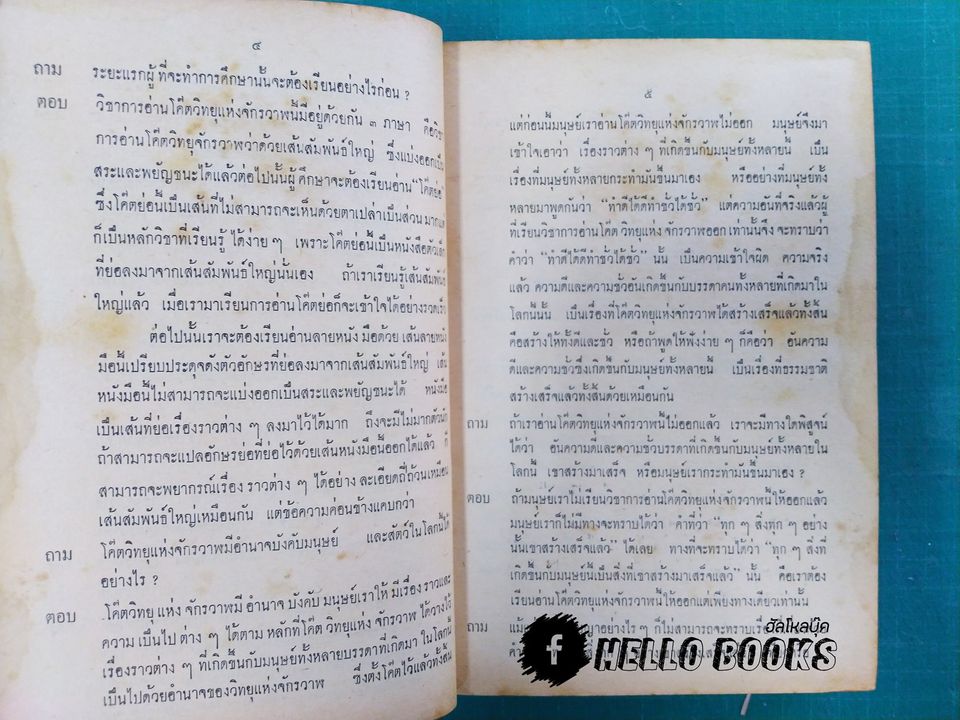 ๔
ถาม ระยะแรกผู้ที่จะทำการศึกษานั้นจะต้องเรียนอย่างไรก่อน ?
ตอบ วิชาการอ่านโค๊ตวิทยุแห่งจักรวาฬนี้มีอยู่ด้วยกัน ๓ ภาษา คือวิชา
การอ่านโค๊ตวิทยุจักรวาฬว่าด้วยเส้นสัมพันธ์ใหญ่ ซึ่งแบ่งออกเป็น
สระและพยัญชนะได้แล้วต่อไปนั้นผู้ศึกษาจะต้องเรียนอ่าน "โค๊ตย่อ"
ซึ่งโค๊ตย่อนี้เป็นเส้นที่ไม่สามารถจะเห็นด้วยตาเปล่าเป็นส่วนมาก
ก็เป็นหลักวิชาที่เรียนรู้ได้ง่าย ๆ เพราะโค๊ตย่อนี้เป็นหนังสือตัวเล็ก
ที่ย่อลงมาจากเส้นสัมพันธ์ใหญ่นั้นเอง ถ้าเราเรียนรู้เส้นสัมพันธ์
ใหญ่แล้ว เมื่อเรามาเรียนการอ่านโค๊ตย่อก็จะเข้าใจได้อย่างรวดเร็ว
ต่อไปนั้นเราจะต้องเรียนอ่านลายหนังมือด้วย เส้นลายหนัง
มือนี้เปรียบประดุจดังตัวอักษรที่ย่อลงมาจากเส้นสัมพันธ์ใหญ่ เส้น
หนังมือนี้ไม่สามารถจะแบ่งออกเป็นสระและพยัญชนะได้ หนังมือ
เป็นเส้นที่ย่อเรื่องราวต่าง ๆ ลงมาไว้ได้มาก ถึงจะมีไม่มากตัวนัก
ถ้าสามารถจะแปลอักษรย่อที่ย่อไว้ด้วยเส้นหนังมือนี้ออกได้แล้ว ก็
สามารถจะพยากรณ์เรื่องราวต่าง ๆ ได้อย่าง ละเอียดถี่ถ้วนเหมือน
เส้นสัมพันธ์ใหญ่เหมือนกัน แต่ข้อความค่อนข้างแคบกว่า
ถาม โค๊ตวิทยุแห่งจักรวาฬมีอำนาจบังคับมนุษย์ และสัตว์ในโลกนี้ได้
อย่างไร ?
ตอบ โค๊ตวิทยุ แห่ง จักรวาฬมี อำนาจ บังคับ มนุษย์เราให้ มีเรื่อง ราวและ
ความ เป็นไป ต่าง ๆ ได้ตาม หลักที่โค๊ต วิทยุ แห่ง จักรวาฬ ได้วางไว้
เรื่องราวต่าง ๆ ที่เกิดขึ้นกับมนุษย์ทั้งหลายบรรดาที่เกิดมา ในโลกนี้
เป็นไปด้วยอำนาจของวิทยุแห่งจักรวาฬ ซึ่งตั้งโค๊ตไว้แล้วทั้งสิ้น
๕
แต่ก่อนนี้มนุษย์เราอ่านโค๊ตวิทยุแห่งจักรวาฬไม่ออก มนุษย์จึงมา
เข้าใจเอาว่า เรื่องราวต่าง ๆ ที่เกิดขึ้นกับมนุษย์ทั้งหลายนี้ เป็น
เรื่องที่มนุษย์ทั้งหลายกระทำมันขึ้นมาเอง หรืออย่างที่มนุษย์ทั้ง
หลายมาพูดกันว่า "ทำดีได้ดีทำชั่วได้ชั่ว" แต่ความอันที่จริงแล้วผู้
ที่เรียนวิชาการอ่านโค๊ต วิทยุแห่ง จักรวาฬออก เท่านั้นจึง จะทราบว่า
คำว่า "ทำดีได้ดีทำชั่วได้ชั่ว" นั้น เป็นความเข้าใจผิด ความจริง
แล้ว ความดีและความชั่วอันเกิดขึ้นกับบรรดาคนทั้งหลายที่เกิดมาใน
โลกนี้นั้น เป็นเรื่องที่โค๊ตวิทยุแห่งจักรวาฬได้สร้างเสร็จแล้วทั้งสิ้น
คือสร้างให้ทั้งดีและชั่ว หรือถ้าพูดให้ฟังง่าย ๆ ก็คือว่า อันความ
ดีและความชั่วซึ่งเกิดขึ้นกับมนุษย์ทั้งหลายนี้ เป็นเรื่องที่ธรรมชาติ
สร้างเสร็จแล้วทั้งสิ้นด้วยเหมือนกัน
ถาม ถ้าเราอ่านโค๊ตวิทยุแห่งจักรวาฬนี้ไม่ออกแล้ว เราจะมีทางใดพิสูจน์
ได้ว่า อันความดีและความชั่วบรรดาที่เกิดขึ้นกับมนุษย์ทั้งหลายใน
โลกนี้ เขาสร้างมาเสร็จ หรือมนุษย์เรากระทำมันขึ้นมาเอง ?
ตอบ ถ้ามนุษย์เราไม่เรียนวิชาการอ่านโค๊ตวิทยุแห่งจักรวาฬนี้ให้ออกแล้ว
มนุษย์เราก็ไม่มีทางจะทราบได้ว่า คำที่ว่า "ทุก ๆ สิ่งทุก ๆ อย่าง
นั้นเขาสร้างเสร็จแล้ว" ได้เลย ทางที่จะทราบได้ว่า "ทุก ๆ สิ่งที่
เกิดขึ้นกับมนุษย์นี้เป็นสิ่งที่เขาสร้างมาเสร็จแล้ว" นั้น คือเราต้อง
เรียนอ่านโค๊ตวิทยุแห่งจักรวาฬนี้ให้ออกแต่เพียงทางเดียวเท่านั้น
ถาม อย่างไร ๆ ก็ไม่สามารถจะทราบเรื่อง
ฮัลโหลบุ๊ค
f HELLO BOOKS